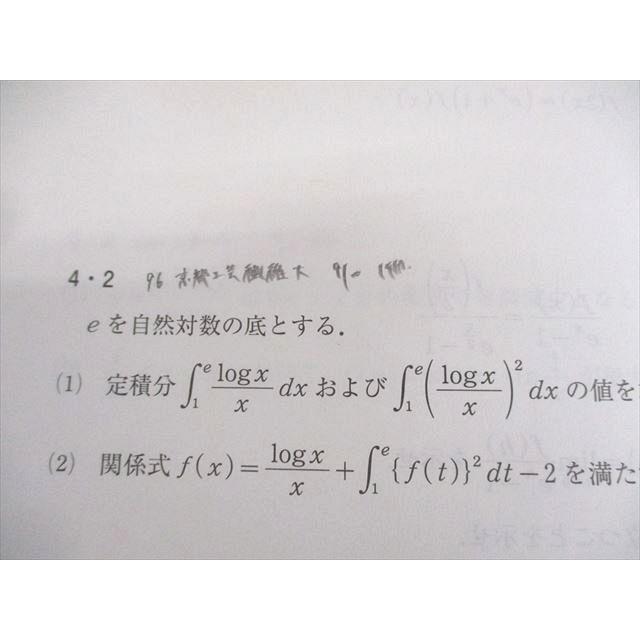 4・2 96 京都工芸繊維大
eを自然対数の底とする.
(1) 定積分∫₁ᵉ log x / x dx および ∫₁ᵉ (log x / x)² dx の値を
(2) 関係式 f(x) = log x / x + ∫₁ᵉ {f(t)}² dt − 2 を満た